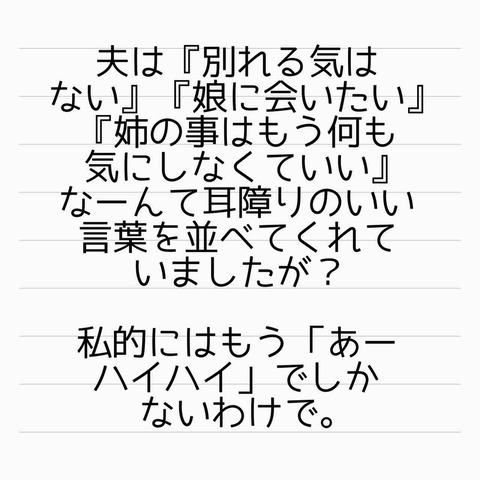 夫は『別れる気は
ない』『娘に会いたい』
『姉の事はもう何も
気にしなくていい』
なーんて耳障りのいい
言葉を並べてくれて
いましたが？
私的にはもう「あー
ハイハイ」でしか
ないわけで。